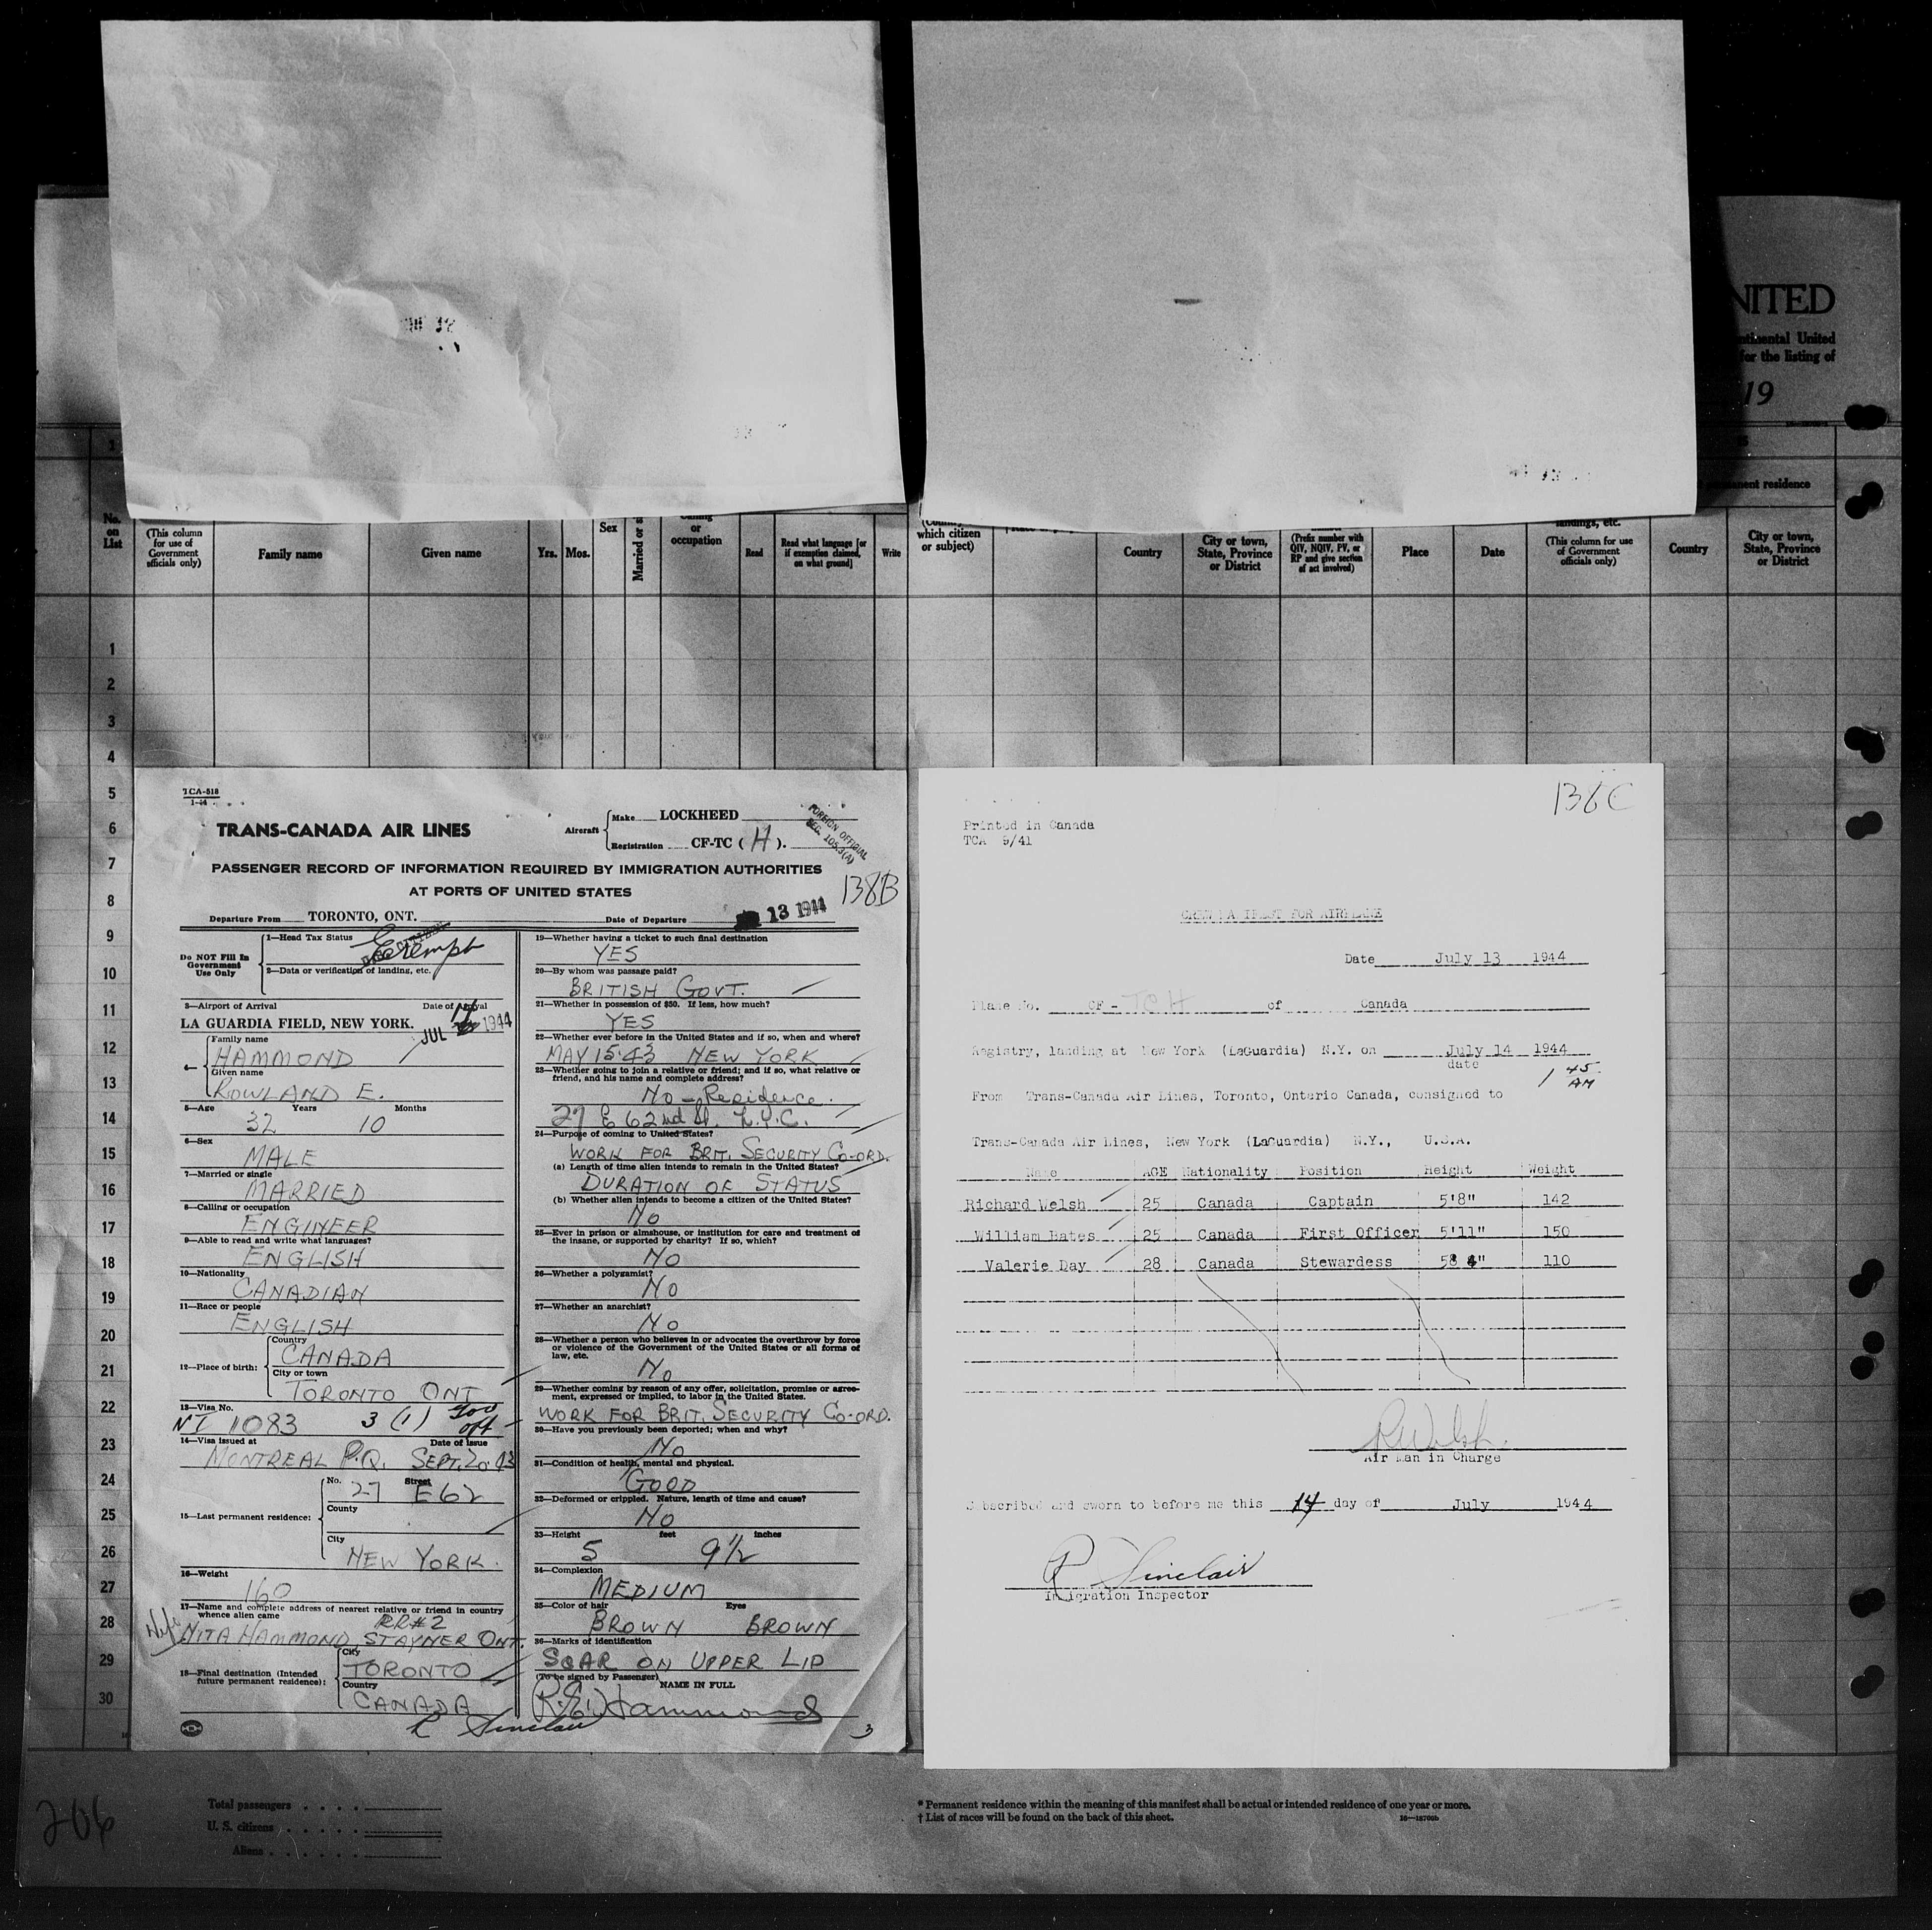 UNITED
Continental United
for the listing of
19
No. on List
(This column for use of Government officials only)
Family name
Given name
Yrs.
Mos.
Sex
Married or s
Calling or occupation
Read
Read what language [or if exemption claimed, on what ground]
Write
(Country of which citizen or subject)
Country
City or town, State, Province or District
(Prefix number with QIV, NQIV, PV, or RP and give section of act involved)
Place
Date
landings, etc.
(This column for use of Government officials only)
permanent residence
Country
City or town, State, Province or District
1
2
3
4
5
6
7
8
9
10
11
12
13
14
15
16
17
18
19
20
21
22
23
24
25
26
27
28
29
30
TCA-518
1-44
TRANS-CANADA AIR LINES
Aircraft
Make LOCKHEED
Registration CF-TC (H).
FOREIGN OFFICIAL
SEC. 105.3(A)
PASSENGER RECORD OF INFORMATION REQUIRED BY IMMIGRATION AUTHORITIES
AT PORTS OF UNITED STATES
138B
Departure From TORONTO, ONT.
Date of Departure 13 1944
Do NOT Fill In Government Use Only
1—Head Tax Status Exempt
2—Data or verification of landing, etc.
3—Airport of Arrival Date of Arrival
LA GUARDIA FIELD, NEW YORK. JUL 14 1944
4— Family name
HAMMOND
Given name
ROWLAND E.
5—Age Years Months
32 10
6—Sex
MALE
7—Married or single
MARRIED
8—Calling or occupation
ENGINEER
9—Able to read and write what languages?
ENGLISH
10—Nationality
CANADIAN
11—Race or people
ENGLISH
12—Place of birth:
Country
CANADA
City or town
TORONTO ONT
13—Visa No.
NI 1083 3 (1) Gov off
14—Visa issued at Date of issue
MONTREAL P.Q. SEPT. 20 43
15—Last permanent residence:
No. Street
27 E 62
County
City
NEW YORK.
16—Weight
160
17—Name and complete address of nearest relative or friend in country whence alien came
RR#2
Wife NITA HAMMOND STAYNER ONT.
18—Final destination (Intended future permanent residence):
City
TORONTO
Country
CANADA
R Sinclair
19—Whether having a ticket to such final destination
YES
20—By whom was passage paid?
BRITISH GOVT.
21—Whether in possession of $50. If less, how much?
YES
22—Whether ever before in the United States and if so, when and where?
MAY 15·43 NEW YORK
23—Whether going to join a relative or friend; and if so, what relative or friend, and his name and complete address?
No – Residence.
27 E 62nd St. N.Y.C.
24—Purpose of coming to United States?
WORK FOR BRIT. SECURITY CO-ORD.
(a) Length of time alien intends to remain in the United States?
DURATION OF STATUS
(b) Whether alien intends to become a citizen of the United States?
NO
25—Ever in prison or almshouse, or institution for care and treatment of the insane, or supported by charity? If so, which?
NO
26—Whether a polygamist?
NO
27—Whether an anarchist?
NO
28—Whether a person who believes in or advocates the overthrow by force or violence of the Government of the United States or all forms of law, etc.
NO
29—Whether coming by reason of any offer, solicitation, promise or agreement, expressed or implied, to labor in the United States.
WORK FOR BRIT. SECURITY CO-ORD.
30—Have you previously been deported; when and why?
NO
31—Condition of health, mental and physical.
GOOD
32—Deformed or crippled. Nature, length of time and cause?
NO
33—Height feet inches
5 9½
34—Complexion
MEDIUM
35—Color of hair Eyes
BROWN BROWN
36—Marks of identification
SCAR ON UPPER LIP
(To be signed by Passenger) NAME IN FULL
R.E. Hammond
3
138C
Printed in Canada
TCA 9/41
CREW MANIFEST FOR AIRPLANE
Date July 13 1944
Plane No. CF - TCH of Canada
Registry, landing at New York (LaGuardia) N.Y. on July 14 1944
date
1 45 AM
From Trans-Canada Air Lines, Toronto, Ontario Canada, consigned to
Trans-Canada Air Lines, New York (LaGuardia) N.Y., U.S.A.
Name AGE Nationality Position Height Weight
Richard Welsh 25 Canada Captain 5'8" 142
William Bates 25 Canada First Officer 5'11" 150
Valerie Day 28 Canada Stewardess 110
R Welsh.
Air Man in Charge
Subscribed and sworn to before me this 14 day of July 1944
R Sinclair
Immigration Inspector
206
Total passengers
U. S. citizens
Aliens
* Permanent residence within the meaning of this manifest shall be actual or intended residence of one year or more.
† List of races will be found on the back of this sheet.